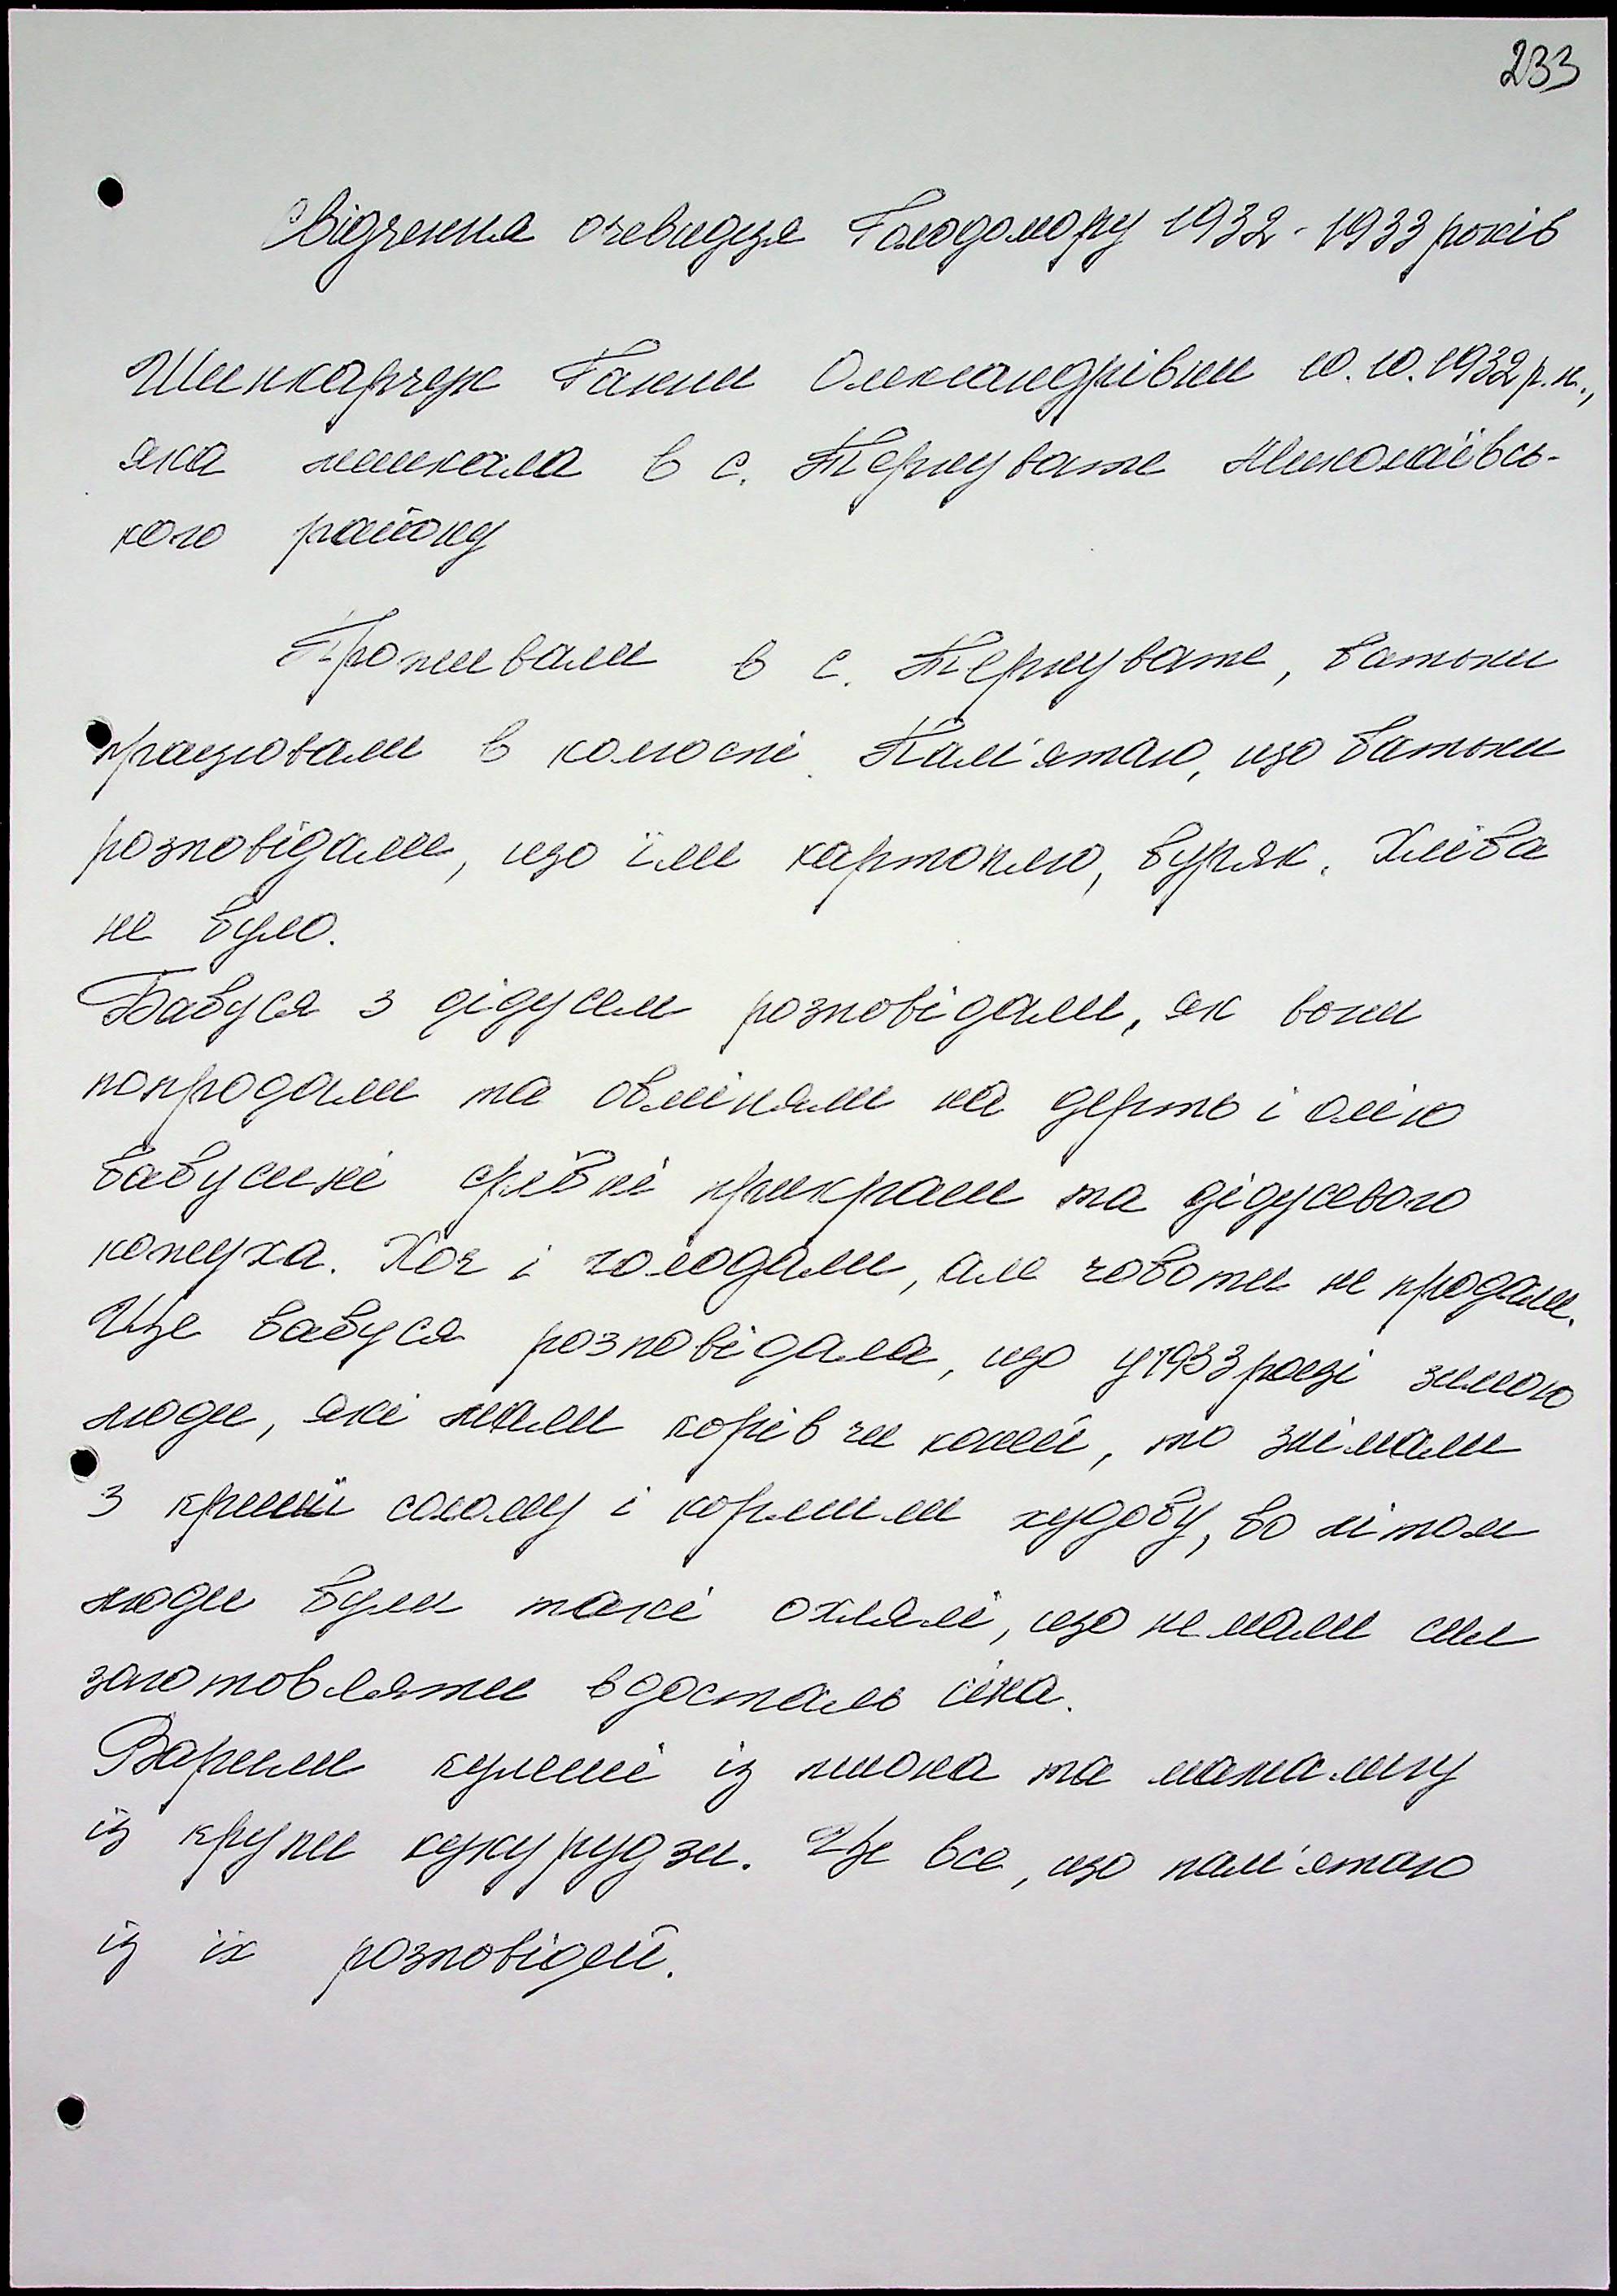 233
Свідчення очевидця Голодомору 1932-1933 років
Шинкарчук Ганни Олександрівни 10.10.1932 р.н.,
яка мешкала в с. Тернувате Миколаївсь-
кого району
Проживали в с. Тернувате, батьки
працювали в колгоспі. Пам'ятаю, що батьки
розповідали, що їли картоплю, буряк. Хліба
не було.
Бабуся з дідусем розповідали, як вони
попродали та обміняли на дерть і олію
бабусині срібні прикраси та дідусевого
кожуха. Хоч і голодали, але чоботи не продали.
Ще бабуся розповідала, що у 1933 році зимою
люди, які мали корів чи коней, то знімали
з криші солому і кормили худобу, бо літом
люди були такі охлялі, що не мали сил
заготовляти вдосталь сіна.
Варили куліші із пшона та мамалигу
із крупи кукурудзи. Це все, що пам'ятаю
із їх розповідей.